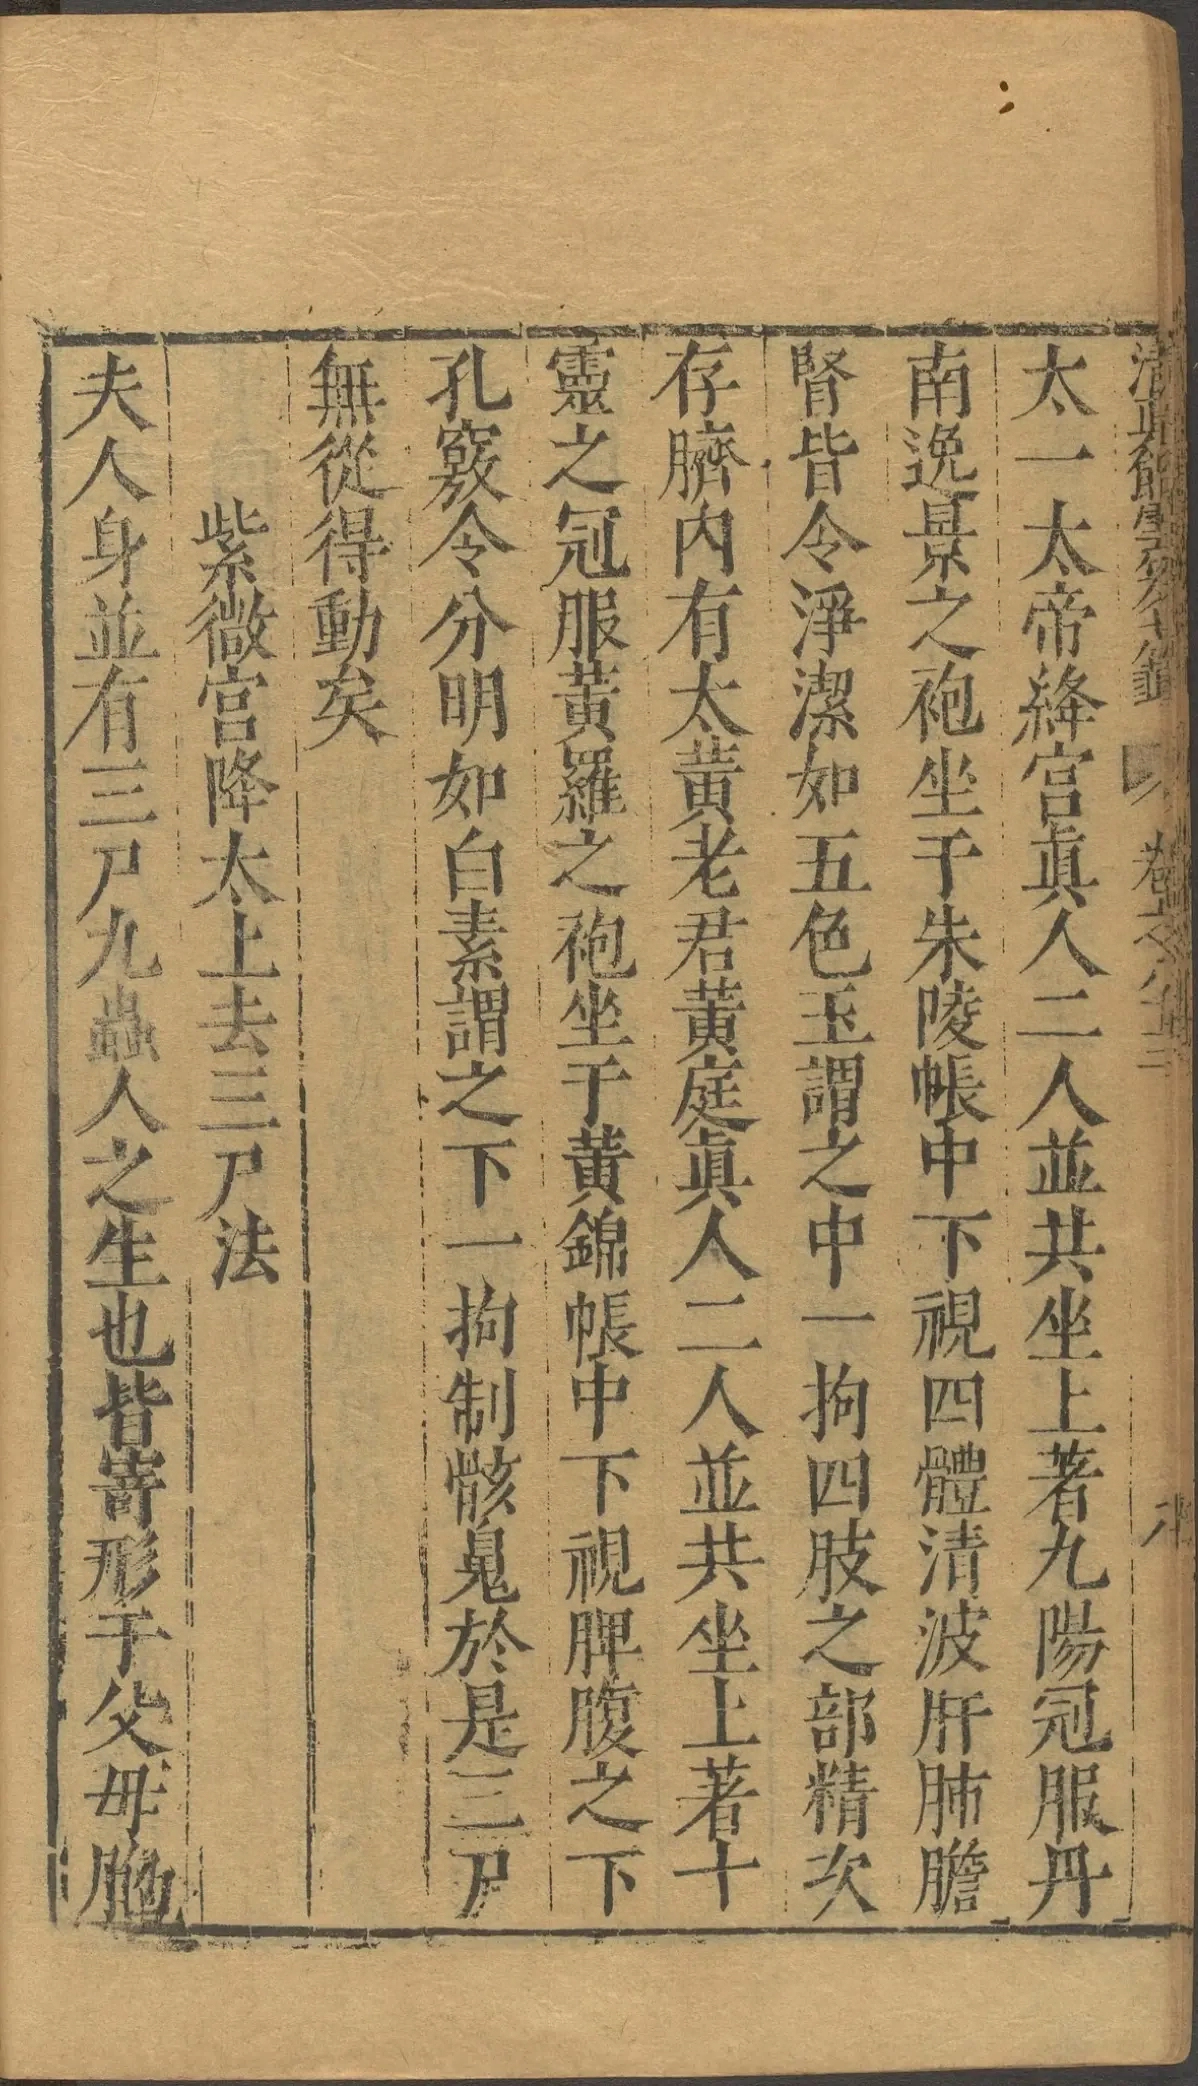 清眞館雲笈七籤 卷之八十三
太一太帝絳宮眞人二人並共坐上著九陽冠服丹
南逸景之袍坐于朱陵帳中下視四體清波肝肺膽
腎皆令淨潔如五色玉謂之中一拘四肢之部精次
存臍內有太黃老君黃庭眞人二人並共坐上著十
靈之冠服黃羅之袍坐于黃錦帳中下視脾腹之下
孔竅令分明如白素謂之下一拘制骸鬼於是三尸
無從得動矣
紫微宮降太上去三尸法
夫人身並有三尸九蟲人之生也皆寄形于父母胞